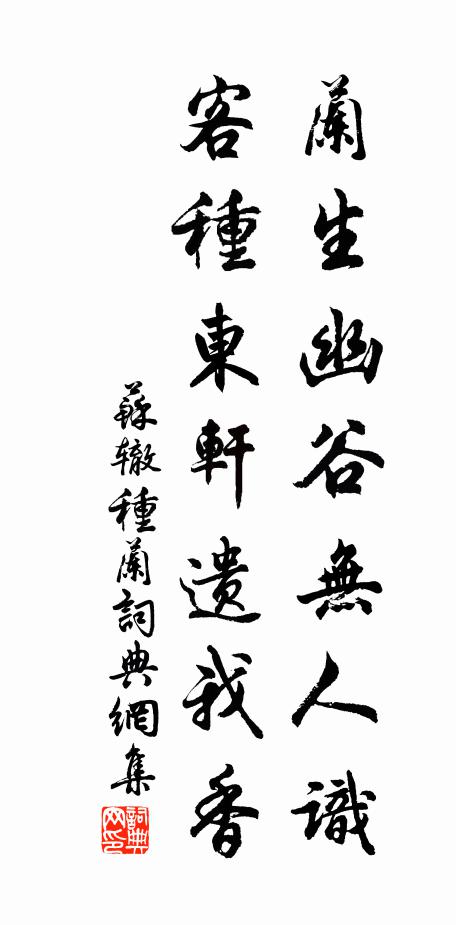 蘭生幽谷無人識
客種東軒遺我香
蘇轍種蘭詞典網集
詞典網印